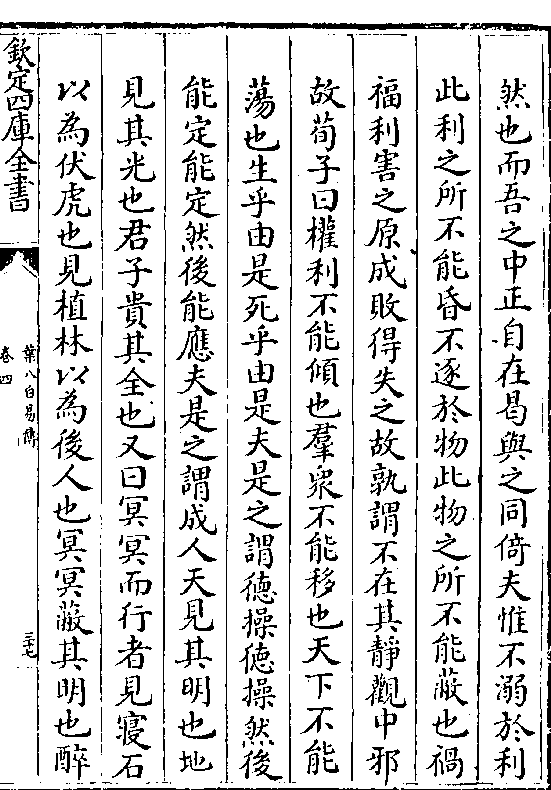 然也而吾之中正自在曷與之同倚夫惟不溺於利
此利之所不能昏不逐於物此物之所不能蔽也禍
福利害之原成敗得失之故孰謂不在其靜觀中邪
故荀子曰權利不能傾也羣衆不能移也天下不能
蕩也生乎由是死乎由是夫是之謂徳操徳操然後
能定能定然後能應夫是之謂成人天見其明也地
見其光也君子貴其全也又曰冥冥而行者見寢石
以為伏虎也見植林以為後人也冥冥蔽其明也醉
欽定四庫全書
葉八白易傳
卷四
三七